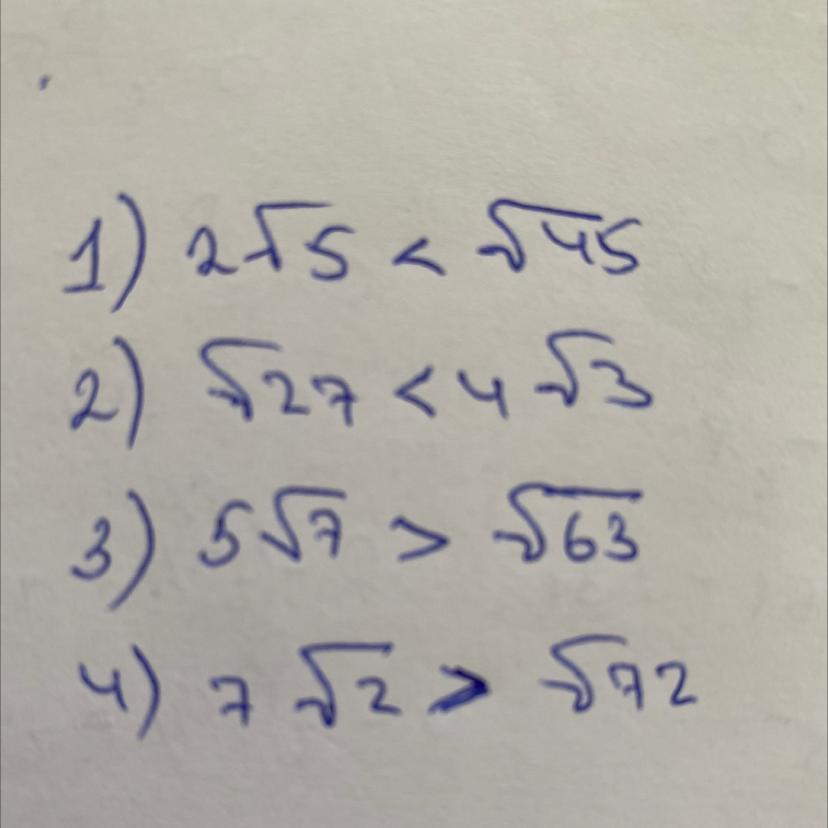 1) 2√5 < √45
2) √27 < 4√3
3) 5√7 > √63
4) 7√2 > √72